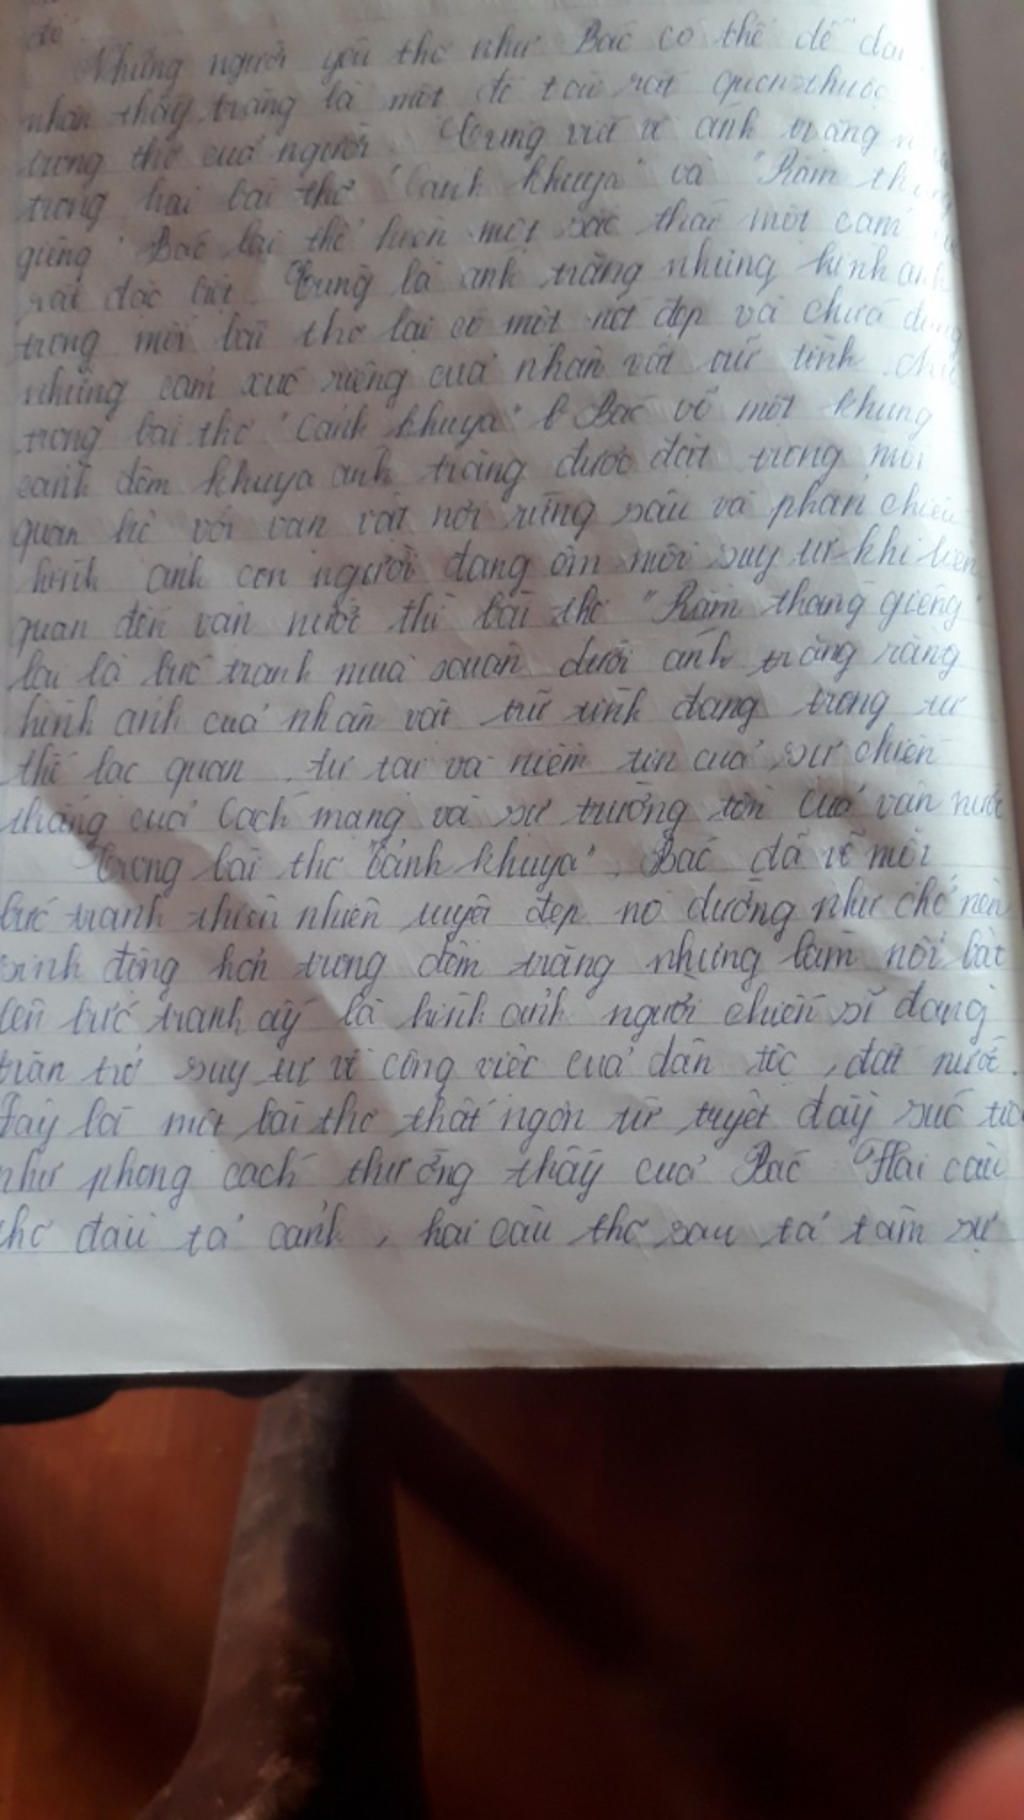 đó
Những người yêu thơ như Bác có thể dễ dà
nhận thấy trăng là một đề tài rất quen thuộc
trong thơ của người. Cùng viết về ánh trăng n
trong hai bài thơ "Cảnh khuya" và "Rằm thá
giêng" Bác lại thể hiện một sắc thái một cảm
rất đặc biệt. Cũng là ánh trăng nhưng hình ản
trong mỗi bài thơ lại có một nét đẹp và chứa đựng
những cảm xúc riêng của nhân vật trữ tình.
trong bài thơ "Cảnh khuya" Bác vẽ một khung
cảnh đêm khuya ánh trăng được đặt trong mối
quan hệ với vạn vật nơi rừng sâu và phản chiếu
hình ảnh con người đang ôm mối suy tư khi liên
quan đến vận nước thì bài thơ "Rằm tháng giêng"
lại là bức tranh mùa xuân dưới ánh trăng rằng
hình ảnh của nhân vật trữ tình đang trong tư
thế lạc quan, tự tại và niềm tin của sự chiến
thắng của Cách mạng và sự trường tồn của vận nước
Trong bài thơ "Cảnh khuya", Bác đã vẽ một
bức tranh thiên nhiên tuyệt đẹp nó dường như chở nên
sinh động hơn trong đêm trăng nhưng làm nổi bật
lên bức tranh ấy là hình ảnh người chiến sĩ đang
trăn trở suy tư về công việc của dân tộc, đất nước.
Đây là một bài thơ thất ngôn tứ tuyệt đầy súc tíc
như phong cách thường thấy của Bác Hai câu
thơ đầu tả cảnh, hai câu thơ sau tả tâm sự